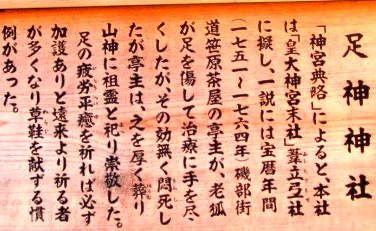 足神神社
「神宮典略」によると、本社
は「皇大神宮末社」葦立弖社
に擬し、一説には宝暦年間
(一七五一～一七六四年)磯部街
道笹原茶屋の亭主が、老狐
が足を傷して治療に手を尽
くしたが、その効無く悶死し
たが亭主は、之を厚く葬り
山神に祖霊と祀り崇敬した。
足の疲労平癒を祈れば必ず
加護ありと遠来より祈る者
が多くなり草鞋を献する慣
例があった。